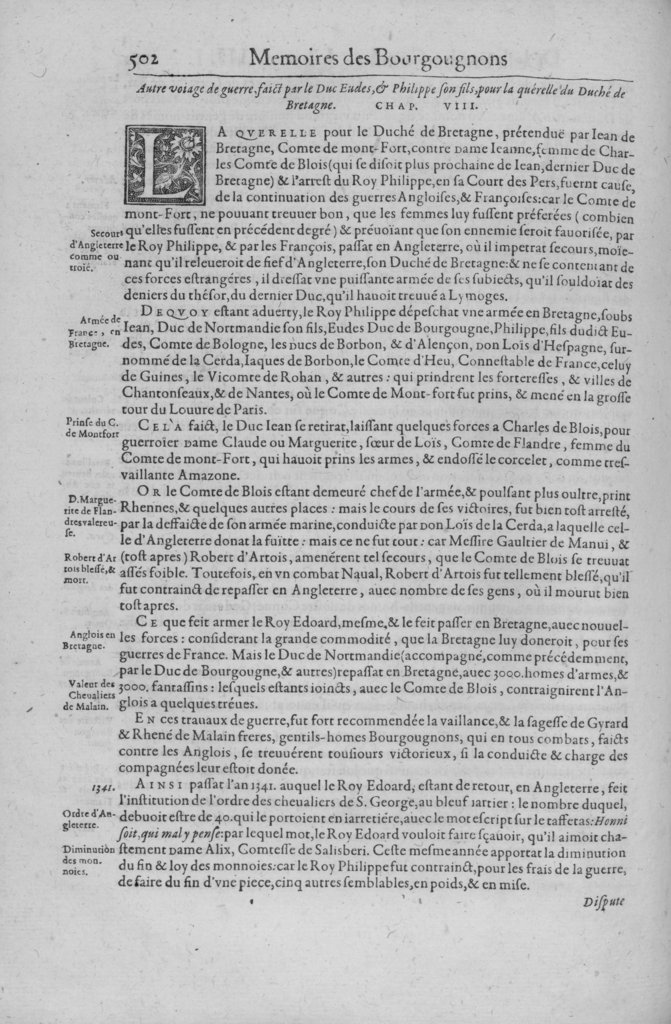 502 Memoires des Bourgougnons
Autre voiage de guerre, faict par le Duc Eudes, & Philippe son fils, pour la quérelle du Duché de
Bretagne. CHAP. VIII.
LA QVERELLE pour le Duché de Bretagne, prétenduë par Iean de
Bretagne, Comte de mont-Fort, contre Dame Ieanne, femme de Char-
les Comte de Blois (qui se disoit plus prochaine de Iean, dernier Duc de
Bretagne) & l'arrest du Roy Philippe, en sa Court des Pers, fuernt cause,
de la continuation des guerres Angloises, & Françoises: car le Comte de
mont-Fort, ne pouuant treuuer bon, que les femmes luy fussent préferées (combien
qu'elles fussent en précédent degré) & préuoïant que son ennemie seroit fauorisée, par
le Roy Philippe, & par les François, passat en Angleterre, où il impetrat secours, moïe-
nant qu'il releueroit de fief d'Angleterre, son Duché de Bretagne: & ne se contentant de
ces forces estrangéres, il dressat vne puissante armée de ses subiects, qu'il souldoïat des
deniers du thésor, du dernier Duc, qu'il hauoit treuué a Lymoges.
Secours
d'Angleterre
comme ou
troié.
DEQVOY estant aduerty, le Roy Philippe dépeschat vne armée en Bretagne, soubs
Iean, Duc de Nortmandie son fils, Eudes Duc de Bourgougne, Philippe, fils dudict Eu-
des, Comte de Bologne, les Ducs de Borbon, & d'Alençon, Don Loïs d'Hespagne, sur-
nommé de la Cerda, Iaques de Borbon, le Comte d'Heu, Connestable de France, celuy
de Guines, le Vicomte de Rohan, & autres: qui prindrent les forteresses, & villes de
Chantonseaux, & de Nantes, où le Comte de Mont-fort fut prins, & mené en la grosse
tour du Louure de Paris.
Armée de
France, en
Bretagne.
CELA faict, le Duc Iean se retirat, laissant quelques forces a Charles de Blois, pour
guerroïer Dame Claude ou Marguerite, sœur de Loïs, Comte de Flandre, femme du
Comte de mont-Fort, qui hauoit prins les armes, & endossé le corcelet, comme tres-
vaillante Amazone.
Prinse du C.
de Montfort
OR le Comte de Blois estant demeuré chef de l'armée, & poulsant plus oultre, print
Rhennes, & quelques autres places: mais le cours de ses victoires, fut bien tost arresté,
par la deffaicte de son armée marine, conduicte par Don Loïs de la Cerda, a laquelle cel-
le d'Angleterre donat la fuitte: mais ce ne fut tout: car Messire Gaultier de Manui, &
(tost apres) Robert d'Artois, amenérent tel secours, que le Comte de Blois se treuuat
assés foible. Toutefois, en vn combat Naual, Robert d'Artois fut tellement blessé, qu'il
fut contrainct de repasser en Angleterre, auec nombre de ses gens, où il mourut bien
tost apres.
D. Margue-
rite de Flan-
dres valereu-
se.
Robert d'Ar
tois blessé, &
mort.
CE que feit armer le Roy Edoard, mesme, & le feit passer en Bretagne, auec nouuel-
les forces: considerant la grande commodité, que la Bretagne luy doneroit, pour ses
guerres de France. Mais le Duc de Nortmandie (accompagné, comme précédemment,
par le Duc de Bourgougne, & autres) repassat en Bretagne, auec 3000. homes d'armes, &
3000. fantassins: lesquels estants ioincts, auec le Comte de Blois, contraignirent l'An-
glois a quelques tréues.
Anglois en
Bretagne.
Valeur des
Cheualiers
de Malain.
EN ces trauaux de guerre, fut fort recommendée la vaillance, & la sagesse de Gyrard
& Rhené de Malain freres, gentils-homes Bourgougnons, qui en tous combats, faicts
contre les Anglois, se treuuérent tousiours victorieux, si la conduicte & charge des
compagnées leur estoit donée.
AINSI passat l'an 1341. auquel le Roy Edoard, estant de retour, en Angleterre, feit
l'institution de l'ordre des cheualiers de S. George, au bleuf iartier: le nombre duquel,
debuoit estre de 40. qui le portoient en iarretiére, auec le mot escript sur le taffetas: Henni
soit, qui mal y pense: par lequel mot, le Roy Edoard vouloit faire sçauoir, qu'il aimoit cha-
stement Dame Alix, Comtesse de Salisberi. Ceste mesme année apportat la diminution
du fin & loy des monnoies: car le Roy Philippe fut contrainct, pour les frais de la guerre,
de faire du fin d'vne piece, cinq autres semblables, en poids, & en mise.
1341.
Ordre d'An-
gleterre.
Diminution
des mon
noies.
Dispute